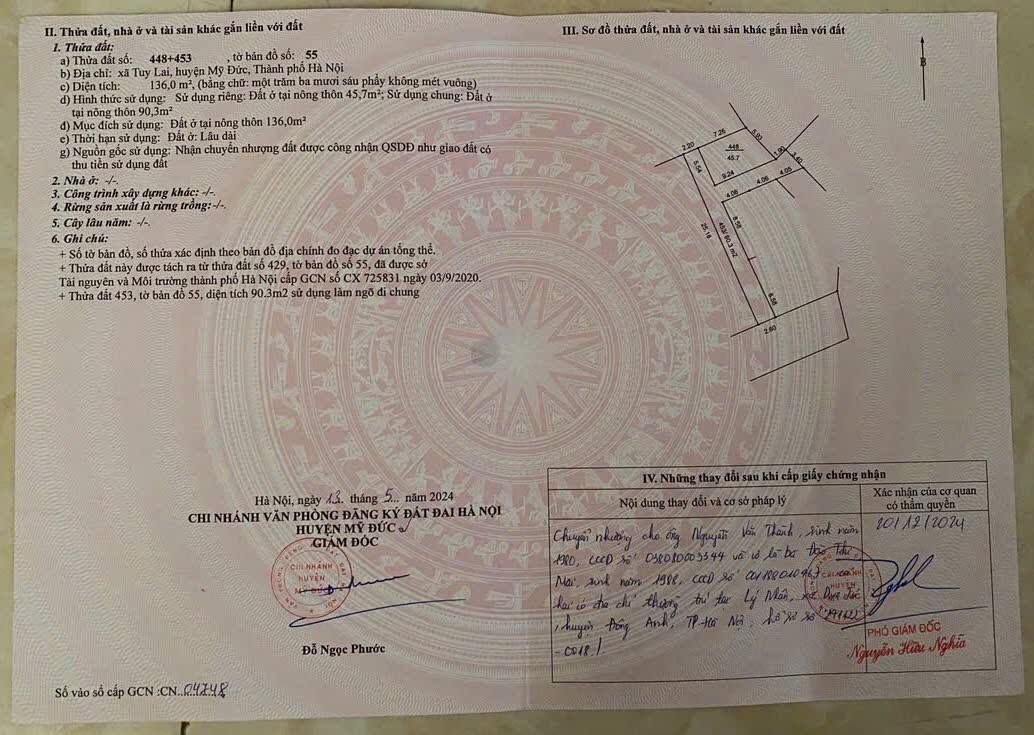 II. Thửa đất, nhà ở và tài sản khác gắn liền với đất
1. Thửa đất:
a) Thửa đất số: 448+453 , tờ bản đồ số: 55
b) Địa chỉ: xã Tuy Lai, huyện Mỹ Đức, Thành phố Hà Nội
c) Diện tích: 136,0 m², (bằng chữ: một trăm ba mươi sáu phẩy không mét vuông)
d) Hình thức sử dụng: Sử dụng riêng: Đất ở tại nông thôn 45,7m²; Sử dụng chung: Đất ở
tại nông thôn 90,3m²
đ) Mục đích sử dụng: Đất ở tại nông thôn 136,0m²
e) Thời hạn sử dụng: Đất ở: Lâu dài
g) Nguồn gốc sử dụng: Nhận chuyển nhượng đất được công nhận QSDĐ như giao đất có
thu tiền sử dụng đất
2. Nhà ở: -/-.
3. Công trình xây dựng khác: -/-.
4. Rừng sản xuất là rừng trồng:-/-.
5. Cây lâu năm: -/-.
6. Ghi chú:
+ Số tờ bản đồ, số thửa xác định theo bản đồ địa chính đo đạc dự án tổng thể.
+ Thửa đất này được tách ra từ thửa đất số 429, tờ bản đồ số 55, đã được sở
Tài nguyên và Môi trường thành phố Hà Nội cấp GCN số CX 725831 ngày 03/9/2020.
+ Thửa đất 453, tờ bản đồ 55, diện tích 90.3m2 sử dụng làm ngõ đi chung
Hà Nội, ngày 13 tháng 5 năm 2024
CHI NHÁNH VĂN PHÒNG ĐĂNG KÝ ĐẤT ĐAI HÀ NỘI
HUYỆN MỸ ĐỨC
GIÁM ĐỐC
CHI NHÁNH
HUYỆN
MỸ ĐỨC
Đỗ Ngọc Phước
Số vào sổ cấp GCN :CN..04748
III. Sơ đồ thửa đất, nhà ở và tài sản khác gắn liền với đất
B
7.26
5.93
2.20
448
45.7
1.90
3.40
5.04
9.24
4.06
4.06
4.05
8.58
25.18
453/ 90.3 m2
8.58
2.60
IV. Những thay đổi sau khi cấp giấy chứng nhận
Nội dung thay đổi và cơ sở pháp lý
Xác nhận của cơ quan
có thẩm quyền
Chuyển nhượng cho ông Nguyễn Văn Thành, sinh năm
1980, CCCD số 038080003344 và vợ là bà Đào Thị
Mai, sinh năm 1988, CCCD số
hai có địa chỉ thường trú tại Lý Nhân, xã Dục Tú
, huyện Đông Anh, TP Hà Nội, hồ sơ số
- 0018./.
20/12/2024
CHI NHÁNH
HUYỆN
PHÓ GIÁM ĐỐC
Nguyễn Hữu Nghĩa